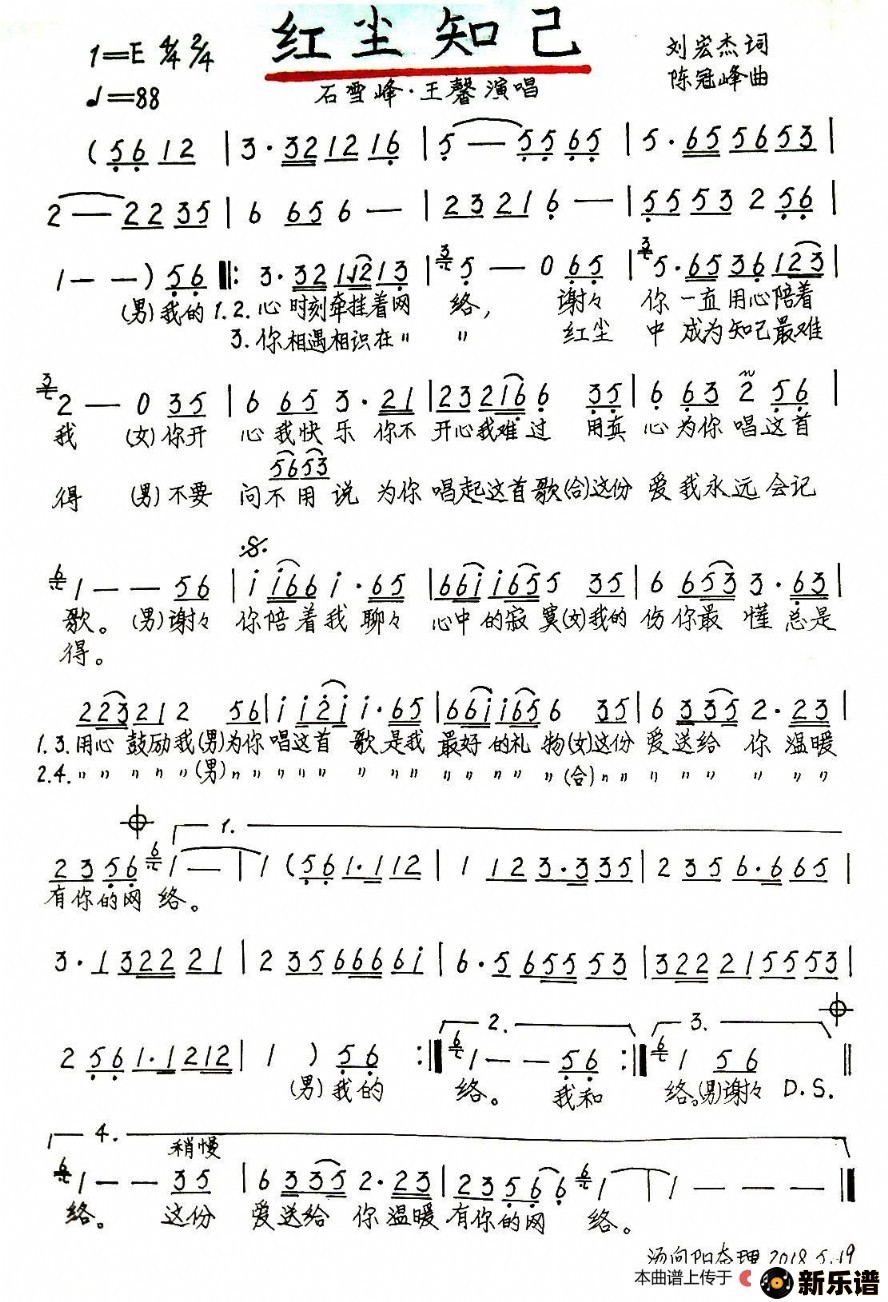 红尘知己
1=E 4/4 2/4
刘宏杰词
♩=88
石雪峰·王馨演唱
陈冠峰曲
(5612 | 3·321216 | 5—5565 | 5·655653 |
2—2235 | 6 656— | 23216— | 5553256 |
1——)56 ‖: 3·321213 | 5—065 | 5·6536123 |
(男)我的 1.2.心时刻牵挂着网 络, 谢々 你一直用心陪着
3.你相遇相识在〃 〃 红尘 中成为知己最难
2—035 | 6 653·21 | 232166 35 | 663256 |
我 (女)你开 心我快乐 你不 开心我难过 用真 心为你唱这首
5653
得 (男)不要 问不用说 为你 唱起这首歌(合)这份 爱我永远会记
1——56 | i i66 i·65 | 66i i655 35 | 6 653 3·63 |
歌。(男)谢々 你陪着我聊々 心中的寂寞(女)我的 伤你最懂总是
得。
223212 56 | i i2i i·65 | 66i i656 35 | 6 335 2·23 |
1.3.用心鼓励我(男)为你唱这首歌是我 最好的礼物(女)这份 爱送给你温暖
2.4.〃〃〃〃〃(男)〃〃〃〃〃〃〃〃〃〃〃〃〃(合)〃〃〃〃〃〃〃〃
1.
2356 1— | 1 (561·112 | 1 123·335 | 2356·665 |
有你的网络。
3·132221 | 2356666i | 6·565553 | 322215553 |
2. 3.
2 561·1212 | 1 ) 56 :‖ 1——56 :‖ 1 56 ‖
(男)我的 络。 我和 络。(男)谢々 D.S.
4. 稍慢
1——35 | 6 335 2·23 | 23566 1— | 1——— ‖
络。 这份 爱送给你温暖 有你的网 络。
2018.5.19
本曲谱上传于
新乐谱